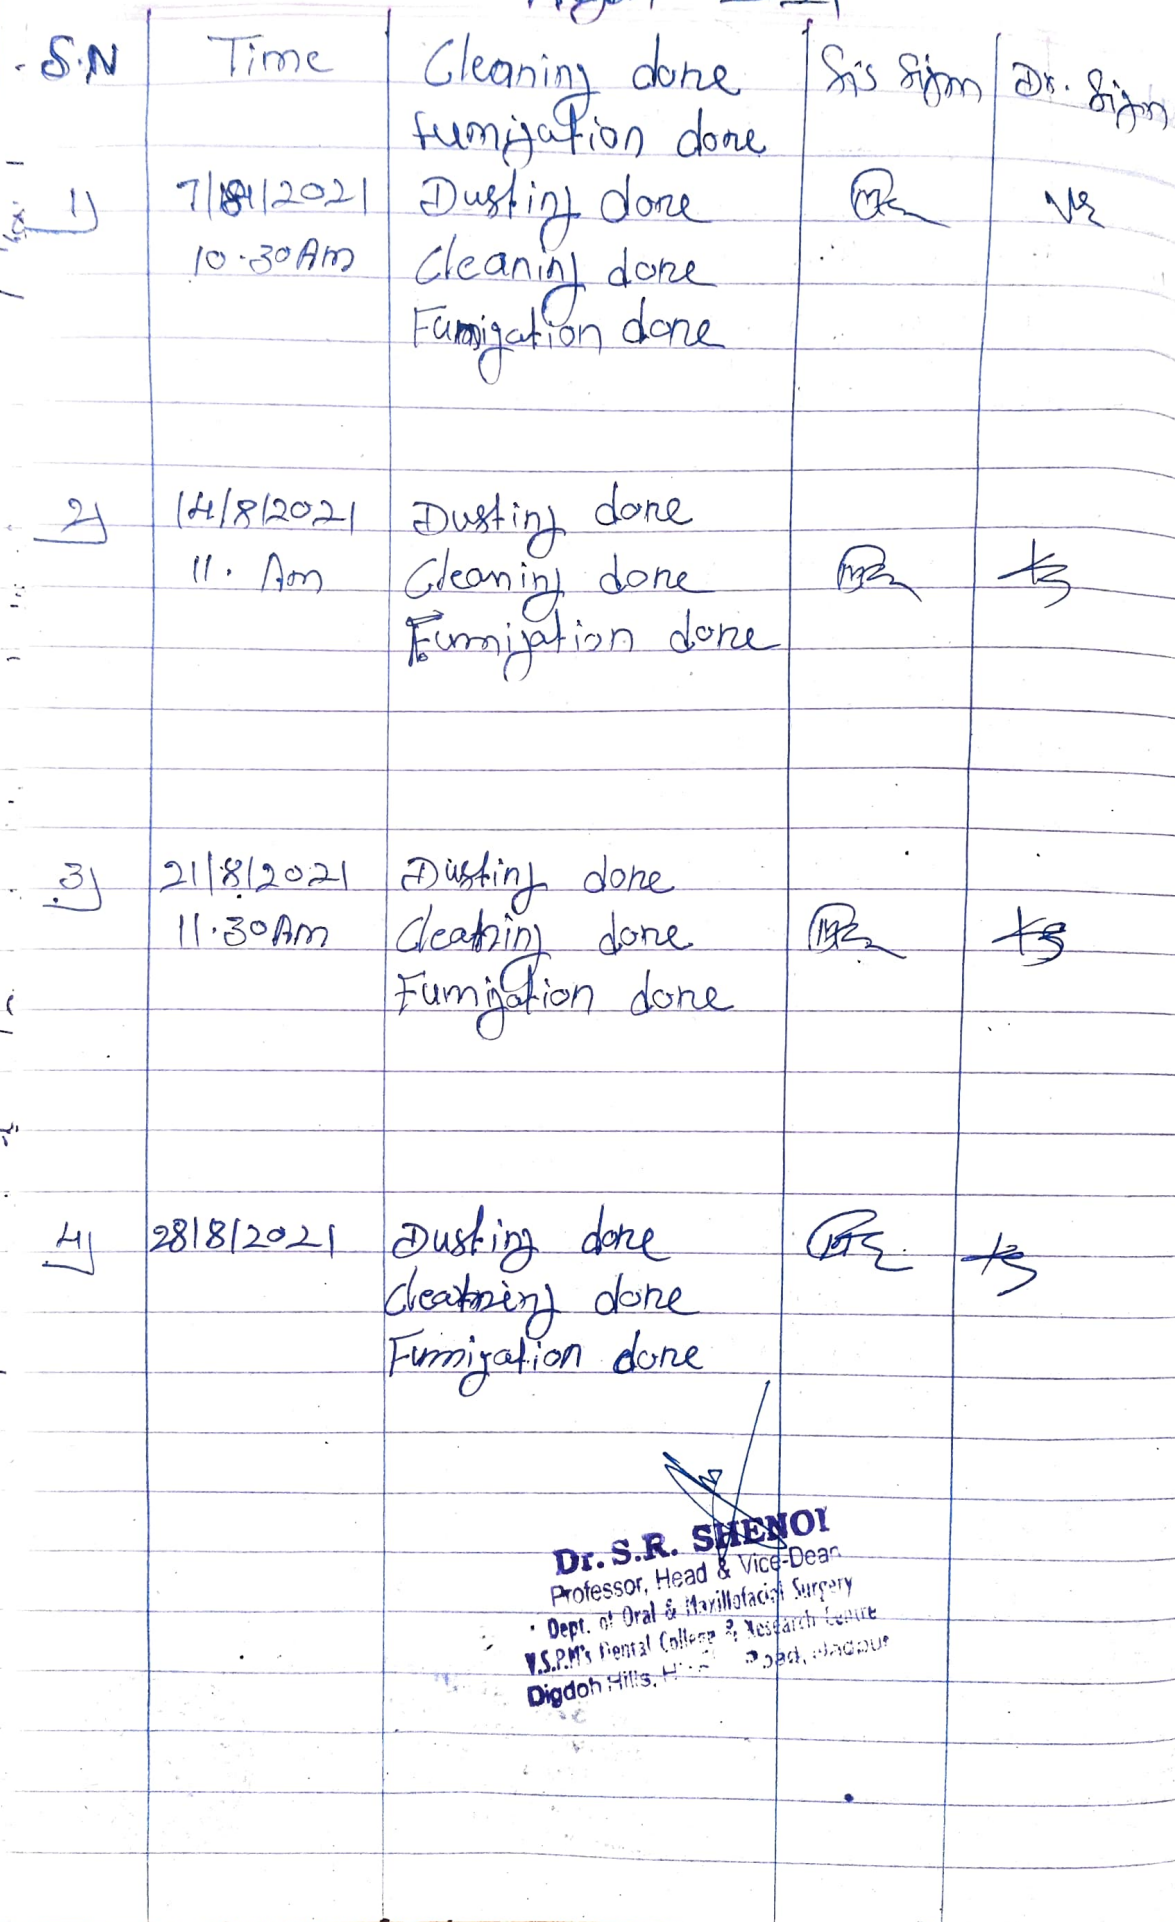 S.N Time Cleaning done Sis Sign Dr. Sign
fumigation done
1) 7/8/2021 Dusting done
10.30 Am Cleaning done
Fumigation done
2) 14/8/2021 Dusting done
11. Am Cleaning done
Fumigation done
3) 21/8/2021 Dusting done
11.30 Am Cleaning done
Fumigation done
4) 28/8/2021 Dusting done
Cleaning done
Fumigation done
Dr. S.R. SHENOI
Professor, Head & Vice-Dean
Dept. of Oral & Maxillofacial Surgery
V.S.P.M's Dental College & Research Centre
Digdoh Hills, Road, Nagpur